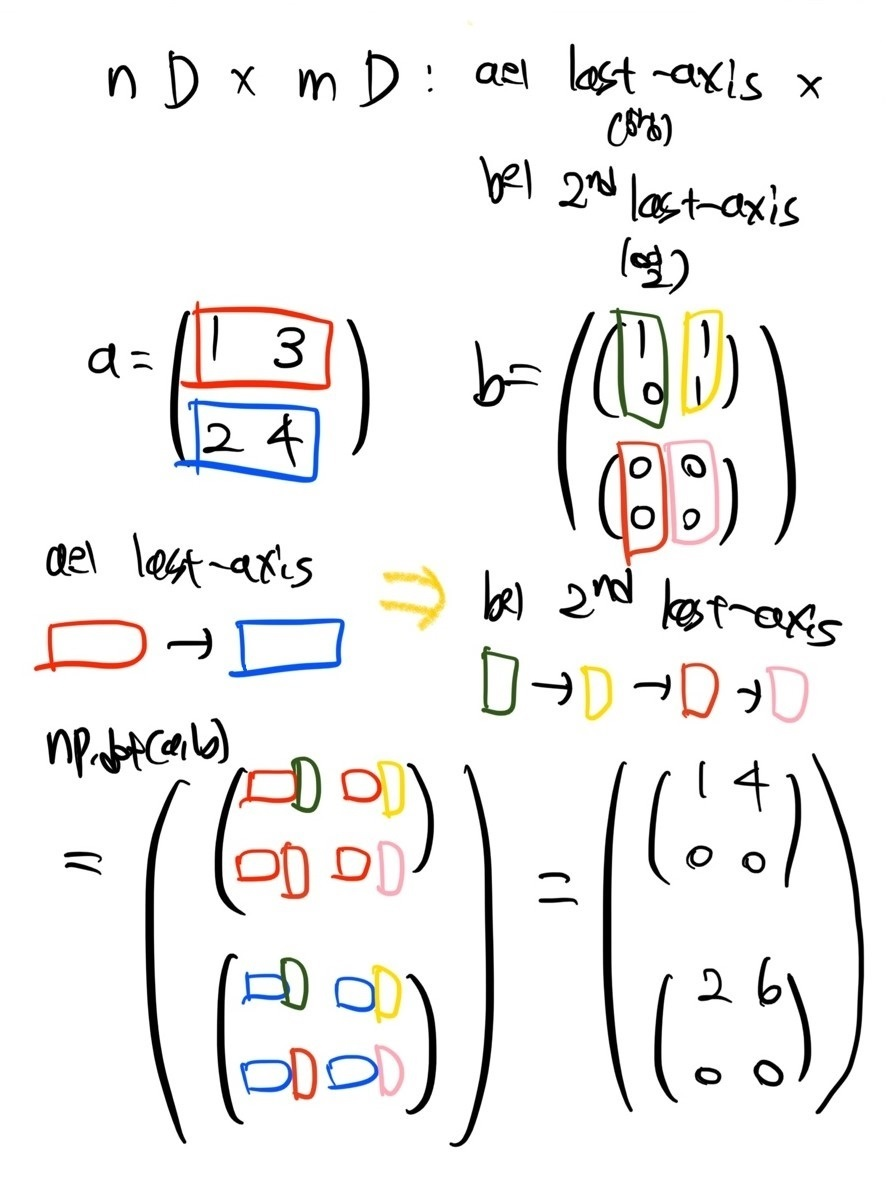 n D × m D : a의 last-axis ×
(행)
b의 2nd last-axis
(열)
a = ( 1 3
2 4 )
b = ( ( 1 1
0 1 )
( 0 0
0 0 ) )
a의 last-axis ⇒ b의 2nd last-axis
→
→ → →
np.dot(a,b)
= = ( ( 1 4
0 0 )
( 2 6
0 0 ) )